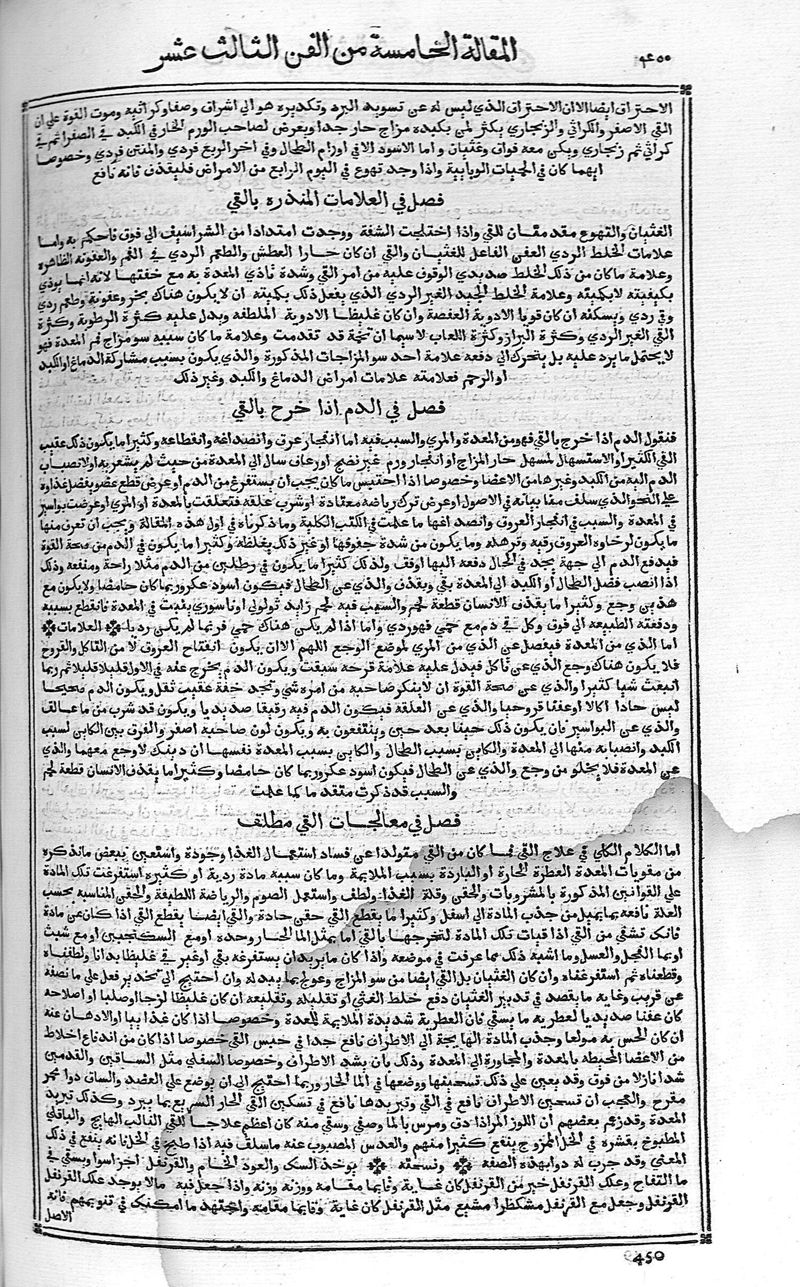 المقالة الخامسة من الفن الثالث عشر
٤٥٠
الاحتراق ايضا الا ان الاحتراق الذي ليس له عن تسويد البرد وتكديره هو الي اشراق وصفا وكراثية وموت القوة علي ان
القي الاصفر والكراثي والزنجاري يكثر لمن بكبده مزاج حار جدا ويعرض لصاحب الورم الحار في الكبد في الصفرا ثم في
كراثي ثم زنجاري ويكن معه فواق وغثيان واما الاسود الا في اورام الطحال وفي اخر الربع فردي والمنتن فردي وخصوصا
ايهما كان في الحميات الوبايية واذا وجد تهوع في اليوم الرابع من الامراض فليقذف فانه نافع
فصل في العلامات المنذرة بالقي
الغثيان والتهوع مقدمتان للقي واذا اختلجت الشفة ووجدت امتدادا من الشراسيف الي فوق فاحكم به واما
علامات الخلط الردي العفن الفاعل للغثيان والقي ان كان حارا العطش والطعم الردي في الفم والعفونة الظاهرة
وعلامة ما كان من ذلك الخلط صديدي الوقوف عليه من امر القي وشدة تاذي المعدة به مع خفتها لانه انما يوذي
بكيفيته لا بكميته وعلامة الخلط الجيد الغير الردي الذي يفعل ذلك بكميته ان لا يكون هناك بخر وعفونة وطعم ردي
وقي ردي ويسكنه ان كان قويا الادوية العفصة وان كان غليظا الادوية الملطفة ويدل عليه كثرة الرطوبة وكثرة
القي الغير الردي وكثرة البراز وكثرة اللعاب لا سيما ان تخمة قد تقدمت وعلامة ما كان سببه سو مزاج فم المعدة فهو
لا يحتمل ما يرد عليه بل يتحرك الي دفعه علامة احد سو المزاجات المذكورة والذي يكون بسبب مشاركة الدماغ او الكبد
او الرحم فعلامته علامات امراض الدماغ والكبد وغير ذلك
فصل في الدم اذا خرج بالقي
فنقول الدم اذا خرج بالقي فهو من المعدة والمري والسبب فيه اما انفجار عرق وانصداعه وانقطاعه وكثيرا ما يكون ذلك عقيب
القي الكثير او الاستسهال لمسهل حار المزاج او انفجار ورم غير نضيج او رعاف سال الي المعدة من حيث لم يشعر به او لانصباب
الدم اليه من الكبد وغيرها من الاعضا وخصوصا اذا احتبس ما كان يجب ان يستفرغ من الدم او عرض قطع عضو يفضل غذاوه
علي النحو الذي سلف منا بيانه في الاصول او عرض ترك رياضة معتادة او شرب علقة فتعلقت بالمعدة او المري او عرضت بواسير
في المعدة والسبب في انفجار العروق وانصداعها ما علمت في الكتب الكلية وما ذكرناه في اول هذه المقالة ويجب ان تعرف منها
ما يكون لرخاوة العروق رقيه وترهله وما يكون من شدة جفوفها او غير ذلك يغلظه وكثيرا ما يكون في الدم من صحة القوة
فيدفع الدم الي جهة يجد في الحال دفعه اليها اوفق ولذلك كثيرا ما يكون في رطلين من الدم مثلا راحة ومنفعة وذلك
اذا انصب فضل الطحال او الكبد الي المعدة بقي ويقذف والذي عن الطحال فيكون اسود عكر وربما كان حامضا ولا يكون مع
هذين وجع وكثيرا ما يقذف الانسان قطعة لحم والسبب فيه لحم زايد ثولولي او ناسوري ينبت في المعدة فانقطع بسببه
ودفعته الطبيعة الي فوق وكل قي دم مع حمي فهو ردي واما اذا لم يكن هناك حمي فربما لم يكن رديا ❊ العلامات ❊
اما الذي من المعدة فيفصل عن الذي من المري لموضع الوجع اللهم الا ان يكون انفتاح العروق لا من التاكل والقروح
فلا يكون هناك وجع الذي عن تاكل فيدل عليه علامة قرحة سبقت ويكون الدم يخرج عنه في الاول قليلا قليلا ثم ربما
انبعث شيا كثيرا والذي عن صحة القوة ان لا ينكر صاحبه من امره شي ويجد خفة عقيب ثقل ويكون الدم صحيحا
ليس حادا اكالا او عفنا قروحيا والذي عن العلقة فيكون الدم فيه رقيقا صديديا ويكون قد شرب من ما عالق
والذي عن البواسير فان يكون ذلك حينا بعد حين وينتفعون به ويكون لون صاحبه اصفر والفرق بين الكاين لسبب
الكبد وانصبابه منها الي المعدة والكاين بسبب الطحال والكاين بسبب المعدة نفسها ان دينك لا وجع معهما والذي
عن المعدة فلا يخلو من وجع والذي عن الطحال فيكون اسود عكر وربما كان حامضا وكثيرا ما يقذف الانسان قطعة لحم
والسبب قد ذكرت متقدما كما علمت
فصل في معالجات القي مطلقا
اما الكلام الكلي في علاج القي فما كان من القي متولدا عن فساد استعمال الغذا وجودة واستعين ببعض ما نذكره
من مقويات المعدة العطرة الحارة او الباردة بسبب الملايمة وما كان سببه مادة ردية او كثيرة استفرغت تلك المادة
علي القوانين المذكورة بالمشروبات والحقن وقلة الغذا ولطف واستعمل الصوم والرياضة اللطيفة والحقن المناسبة بحسب
العلة نافعة بما يميل من جذب المادة الي اسفل وكثيرا ما يقطع القي حقن حادة والقي ايضا يقطع القي اذا كان عن مادة
فانك تشفي من القي اذا قيات تلك المادة لتخرجها بالقي اما بمثل الما الحار وحده او مع السكنجبين او مع شبث
او بما الفجل والعسل وما اشبه ذلك مما عرفت في موضعه واذا كان ما يريد ان يستفرغه بقي او غير قي غليظا بدانا ولطفناه
وقطعناه ثم استفرغناه وان كان الغثيان بل القي ايضا من سو المزاج وعولج بما يبدله وان احتيج الي تخدير فعل علي ما نصفه
عن قريب وغاية ما يقصد في تدبير الغثيان دفع خلط الغثي او تقليله وتقليعه ان كان غليظا لزجا او صلبا او اصلاحه
ان كان عفنا صديديا لعطرية ما يسقي فان العطرية شديدة الملايمة للمعدة وخصوصا اذا كان غذاييا او الادهان عنه
ان كان الحس به مولعا وجذب المادة الهايجة الي الاطراف نافع جدا في حبس القي خصوصا اذا كان من اندفاع اخلاط
من الاعضا المحيطة بالمعدة والمجاورة الي المعدة وذلك بان يشد الاطراف وخصوصا السفلي مثل الساقين والقدمين
شدا نازلا من فوق وقد يعين علي ذلك تسخينها ووضعها في الما الحار وربما احتيج الي ان يوضع علي العضد والساق دوا محمر
مقرح والعجب ان تسخين الاطراف نافع في القي وتبريدها نافع في تسكين القي الحار السريع بما يبرد وكذلك تبريد
المعدة وقد زعم بعضهم ان اللوز المر اذا دق ومرس بالما وصفي وسقي منه كان اعظم علاجا للقي الغالب الهايج والباقلي
المطبوخ بقشره في الخل الممزوج ينفع كثيرا منهم والعدس المصبوب عنه ما سلف فيه اذا طبخ في الخل فانه ينفع في ذلك
المعني وقد جرب له دوا بهذه الصفة ❊ ونسخته ❊ يوخذ السك والعود الخام والقرنفل اجزا سوا ويسقي في
ما التفاح وعلك القرنفل خير من القرنفل كان غاية وقايما مقامه ووزنه وزنه واذا جعل فيه مالا يوجد علك القرنفل
القرنفل وجعل مع القرنفل مشكطرا مشيع مثل القرنفل كان غاية وقايما مقامه واجتهد ما امكنك في تنويمهم فانه
الاصل
450